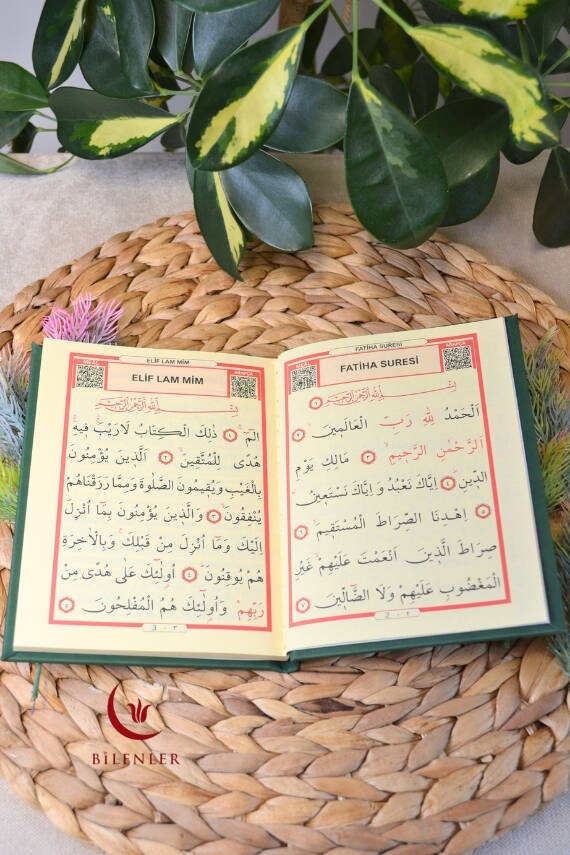 FATİHA SURESİ
FATİHA SURESİ
بِسْــــــمِ اللّٰهِ الرَّحْمٰنِ الرَّحِيمِ ١
اَلْحَمْدُ لِلّٰهِ رَبِّ الْعَالَمِينَ ٢
اَلرَّحْمٰنِ الرَّحِيمِ ٣ مَالِكِ يَوْمِ
الدِّينِ ٤ اِيَّاكَ نَعْبُدُ وَ اِيَّاكَ نَسْتَعِينُ
٥ اِهْدِنَا الصِّرَاطَ الْمُسْتَقِيمَ ٦
صِرَاطَ الَّذِينَ اَنْعَمْتَ عَلَيْهِمْ غَيْرِ
الْمَغْضُوبِ عَلَيْهِمْ وَلَا الضَّالِّينَ ٧
2 - ٢
ELİF LAM MİM
ELİF LAM MİM
بِسْــــــمِ اللّٰهِ الرَّحْمٰنِ الرَّحِيمِ
الٓمٓ ١ ذٰلِكَ الْكِتَابُ لَارَيْبَ فِيهِ
هُدًى لِلْمُتَّقِينَ ٢ اَلَّذِينَ يُؤْمِنُونَ
بِالْغَيْبِ وَيُقِيمُونَ الصَّلٰوةَ وَمِمَّا رَزَقْنَاهُمْ
يُنْفِقُونَ ٣ وَالَّذِينَ يُؤْمِنُونَ بِمَٓا اُنْزِلَ
اِلَيْكَ وَمَٓا اُنْزِلَ مِنْ قَبْلِكَ وَبِالْاٰخِرَةِ
هُمْ يُوقِنُونَ ٤ اُولٰٓئِكَ عَلٰى هُدًى مِنْ
رَبِّهِمْ وَاُولٰٓئِكَ هُمُ الْمُفْلِحُونَ ٥
3 - ٣
BİLENLER